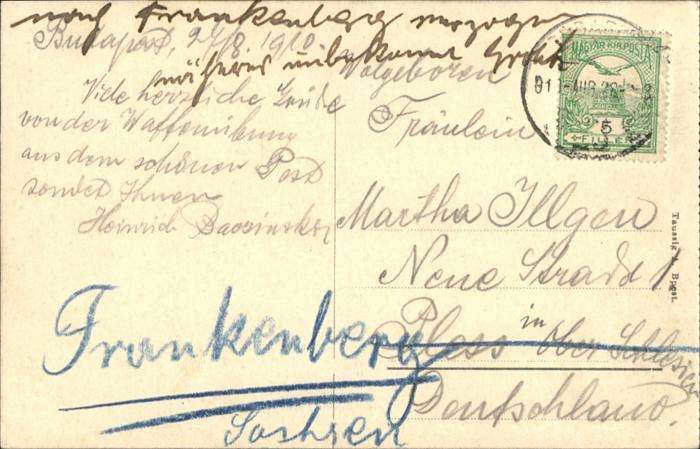 nach Frankenberg verzogen
näheres unbekannt
Budapest, 29/8. 1910
Viele herzliche Grüße
von der Waffenübung
aus dem schönen Pest
sendet Ihnen
Heinrich
Wolgeboren
Fräulein
Martha Illgen
Neue Strasse 1
Pless in Ober Schlesien
Deutschland.
Frankenberg
Sachsen
MAGYAR KIR. POSTA
5
FILLÉR
Taussig A. Bpest.